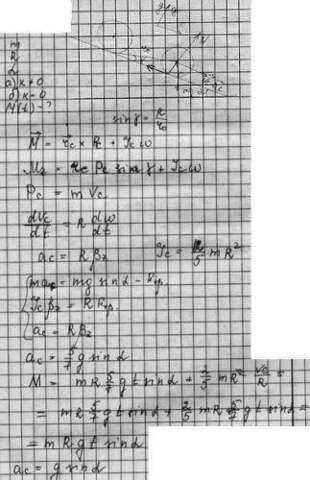 m
R
α
а) k ≠ 0
б) k = 0
M(t) - ?
sin γ = R/r₀
M⃗ = r⃗c × p⃗ + Jc ω
Mz = rc Pc sin γ + Jc ω
Pc = m Vc
dVc/dt = R dω/dt
ac = R βz Jc = 2/5 m R²
mac = mg sin α - Fтр.
Jc βz = R Fтр.
ac = R βz
ac = 5/7 g sin α
M = m R 5/7 g t sin α + 2/5 m R² Vc/R =
= m R 5/7 g t sin α + 2/5 m R 5/7 g t sin α =
= m R g t sin α
ac = g sin α